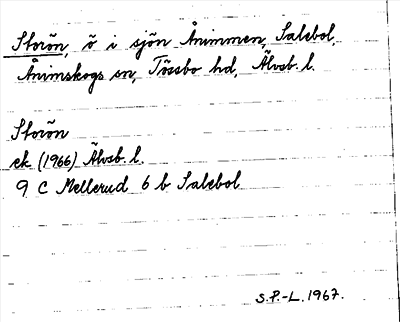 Storön, ö i sjön Ånimmen, Salebol,
Ånimskogs sn, Tössbo hd, Älvsb. l.
Storön
ek (1966) Älvsb. l.
9 C Mellerud 6 b Salebol
S.P.-L. 1967.